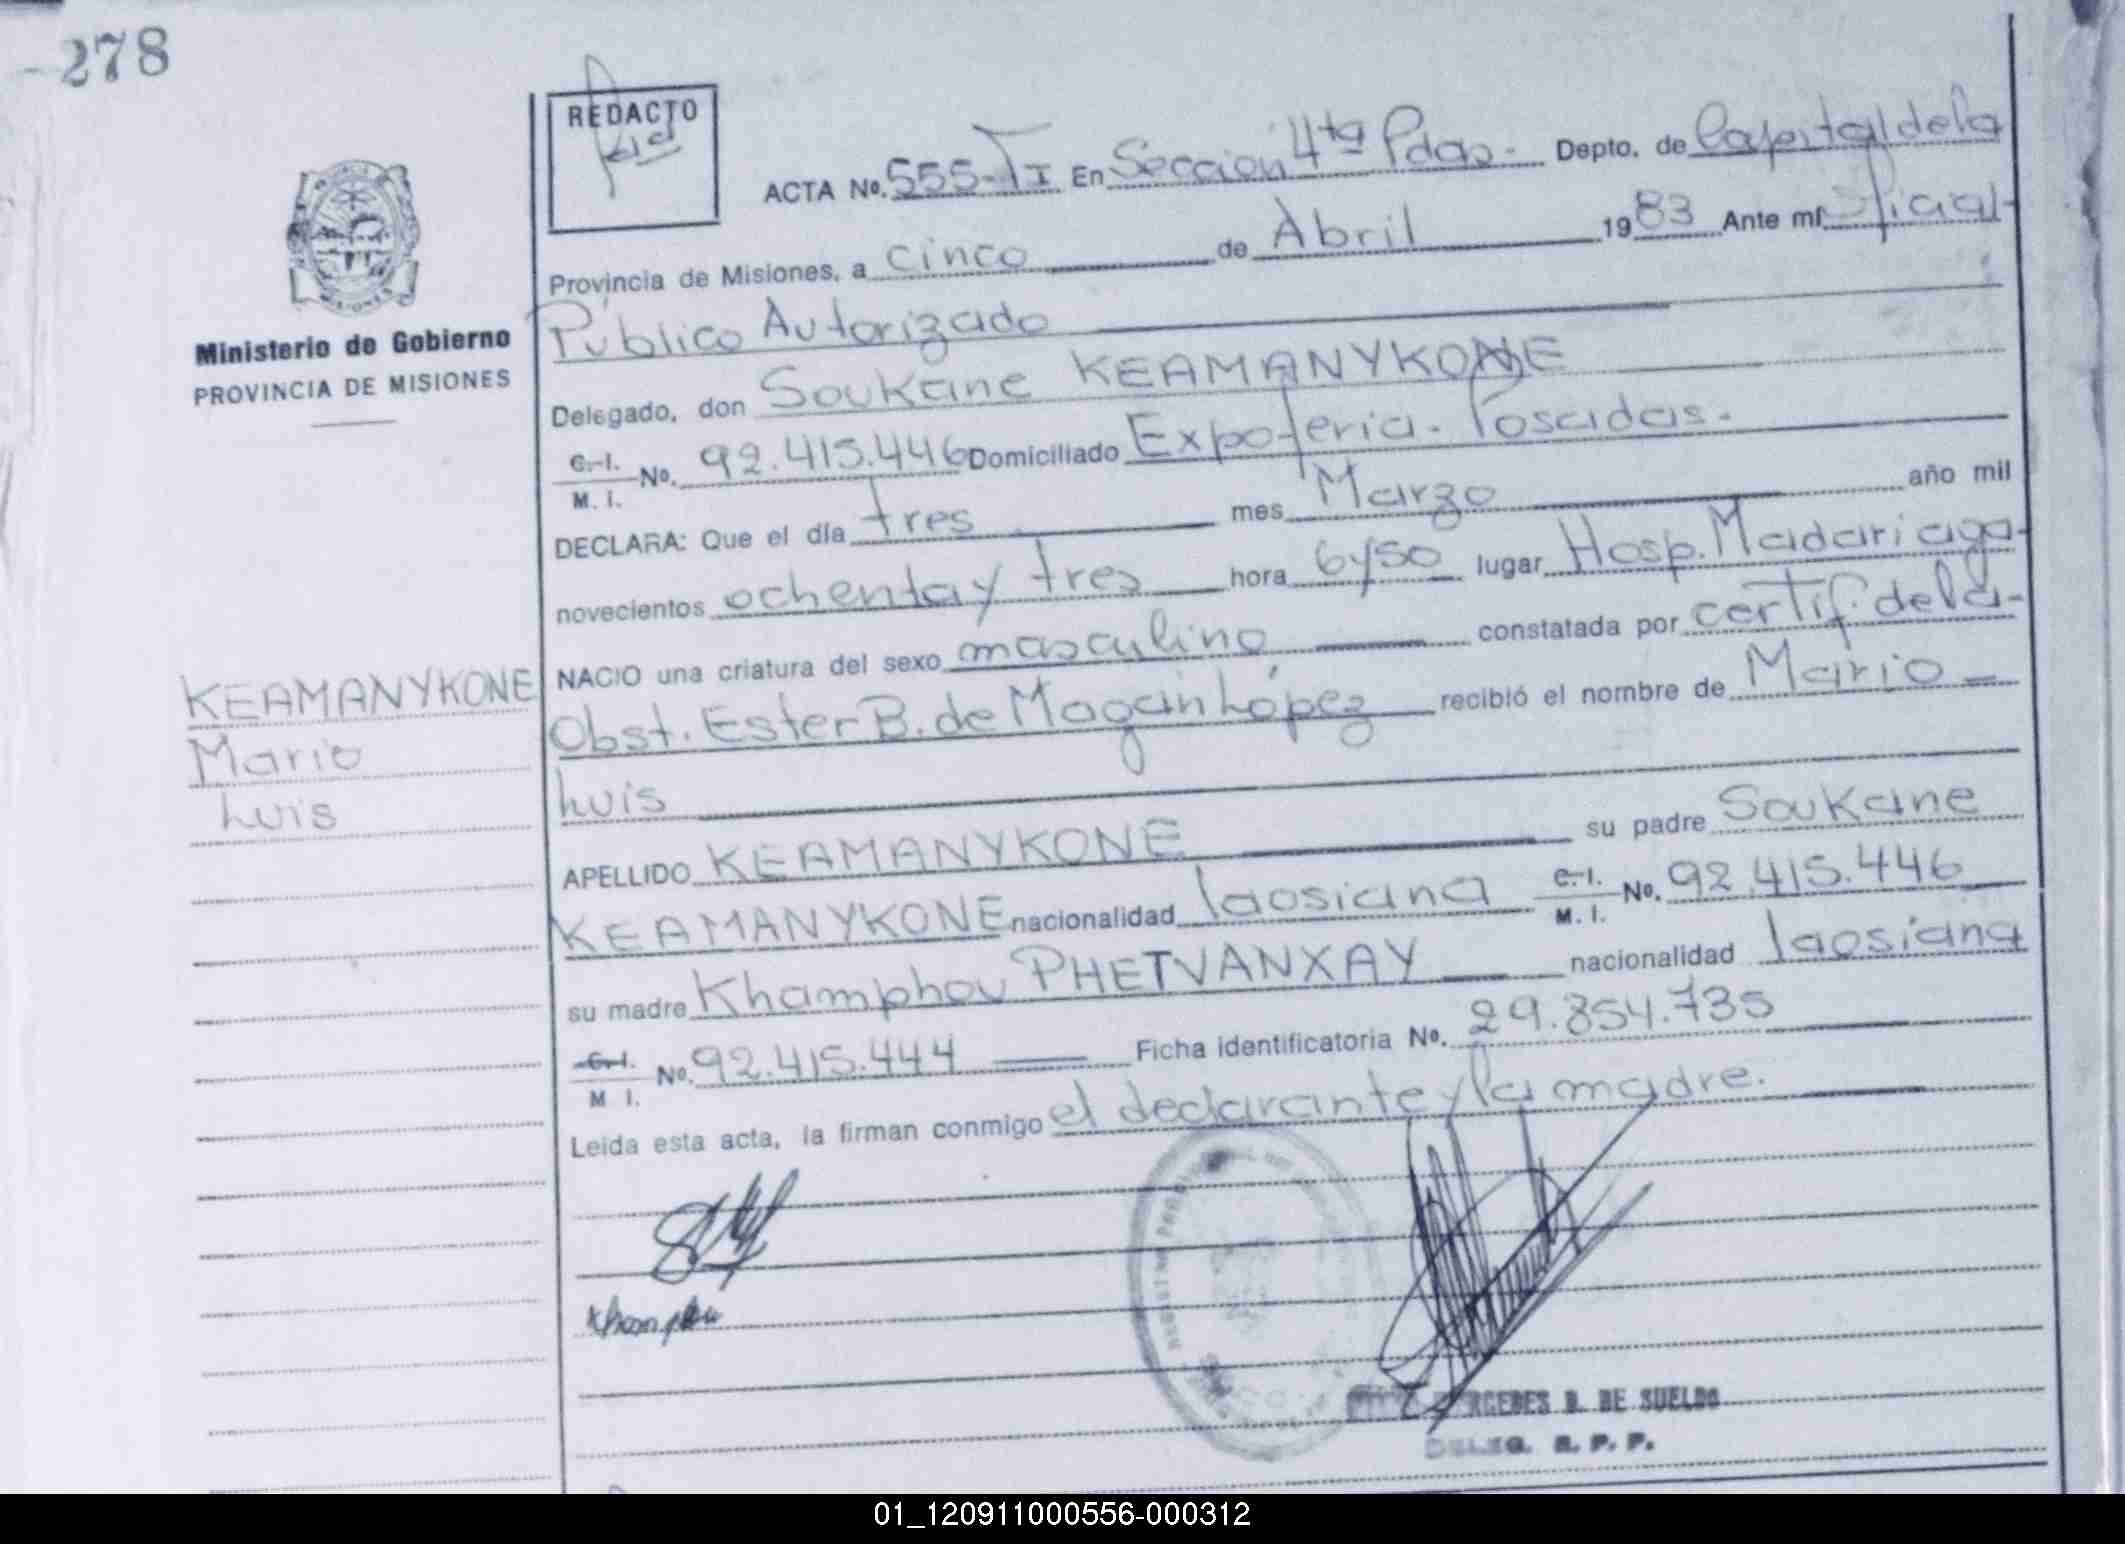 278
REDACTO
ACTA No. 555-TI En Sección 4ta Pdas. Depto. de Capital de la
Provincia de Misiones, a cinco de Abril 1983 Ante mí Oficial
Público Autorizado
Delegado, don Soukane KEAMANYKONE
C.I. M. I. No. 92.415.446 Domiciliado Expoferia. Posadas.
DECLARA: Que el día tres mes Marzo año mil
novecientos ochenta y tres hora 6y50 lugar Hosp. Madariaga
NACIO una criatura del sexo masculino constatada por certif. de la
Obst. Ester B. de Magain López recibió el nombre de Mario
Luis
APELLIDO KEAMANYKONE su padre Soukane
KEAMANYKONE nacionalidad laosiana C.I. M. I. No. 92.415.446
su madre Khamphou PHETVANXAY nacionalidad laosiana
C.I. M I. No. 92.415.444 Ficha identificatoria No. 29.854.735
Leida esta acta, la firman conmigo el declarante y la madre.
Ministerio de Gobierno
PROVINCIA DE MISIONES
KEAMANYKONE
Mario
Luis
Khamphou
B. DE SUELDO
DELEG. R. P. P.
01_120911000556-000312